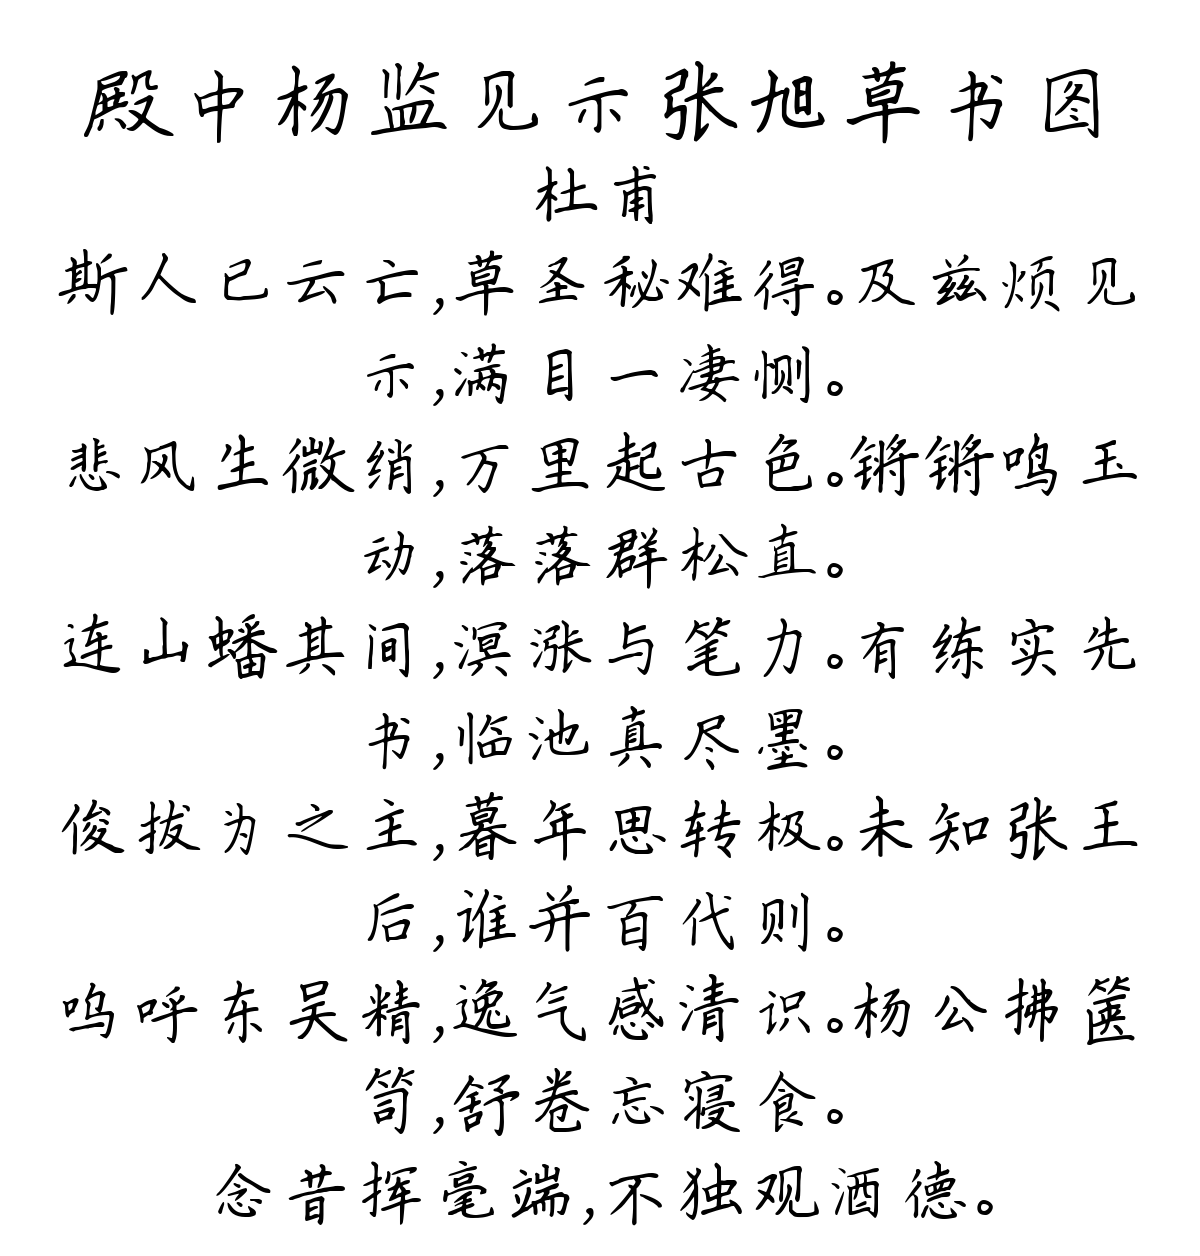 殿中杨监见示张旭草书图
杜甫
斯人已云亡,草圣秘难得。及兹烦见
示,满目一凄恻。
悲风生微绡,万里起古色。锵锵鸣玉
动,落落群松直。
连山蟠其间,溟涨与笔力。有练实先
书,临池真尽墨。
俊拔为之主,暮年思转极。未知张王
后,谁并百代则。
呜呼东吴精,逸气感清识。杨公拂箧
笥,舒卷忘寝食。
念昔挥毫端,不独观酒德。